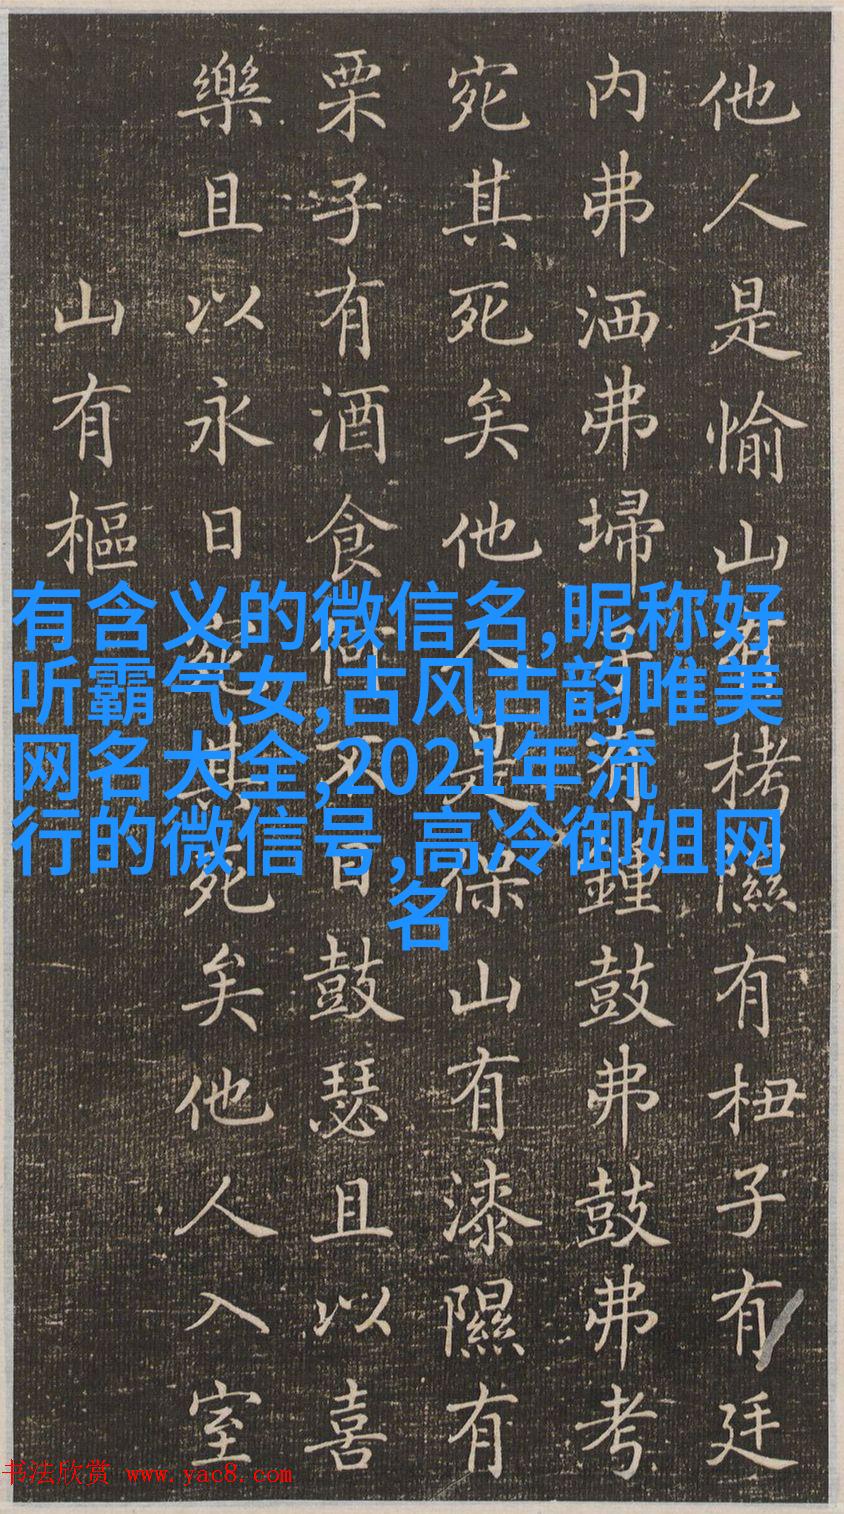 他人是愉山有栲隰有杻子有廷
内弗洒弗埽子有鍾鼓弗鼓弗考
宛其死矣他人是保山有漆隰有
栗子有酒食何不日鼓瑟且以喜
樂且以永日宛其死矣他人入室
山有樞
有含义的微信名,昵称好
听霸气女,古风古韵唯美
网名大全,2021年流
行的微信号,高冷御姐网
名
书法欣赏 www.yac8.com